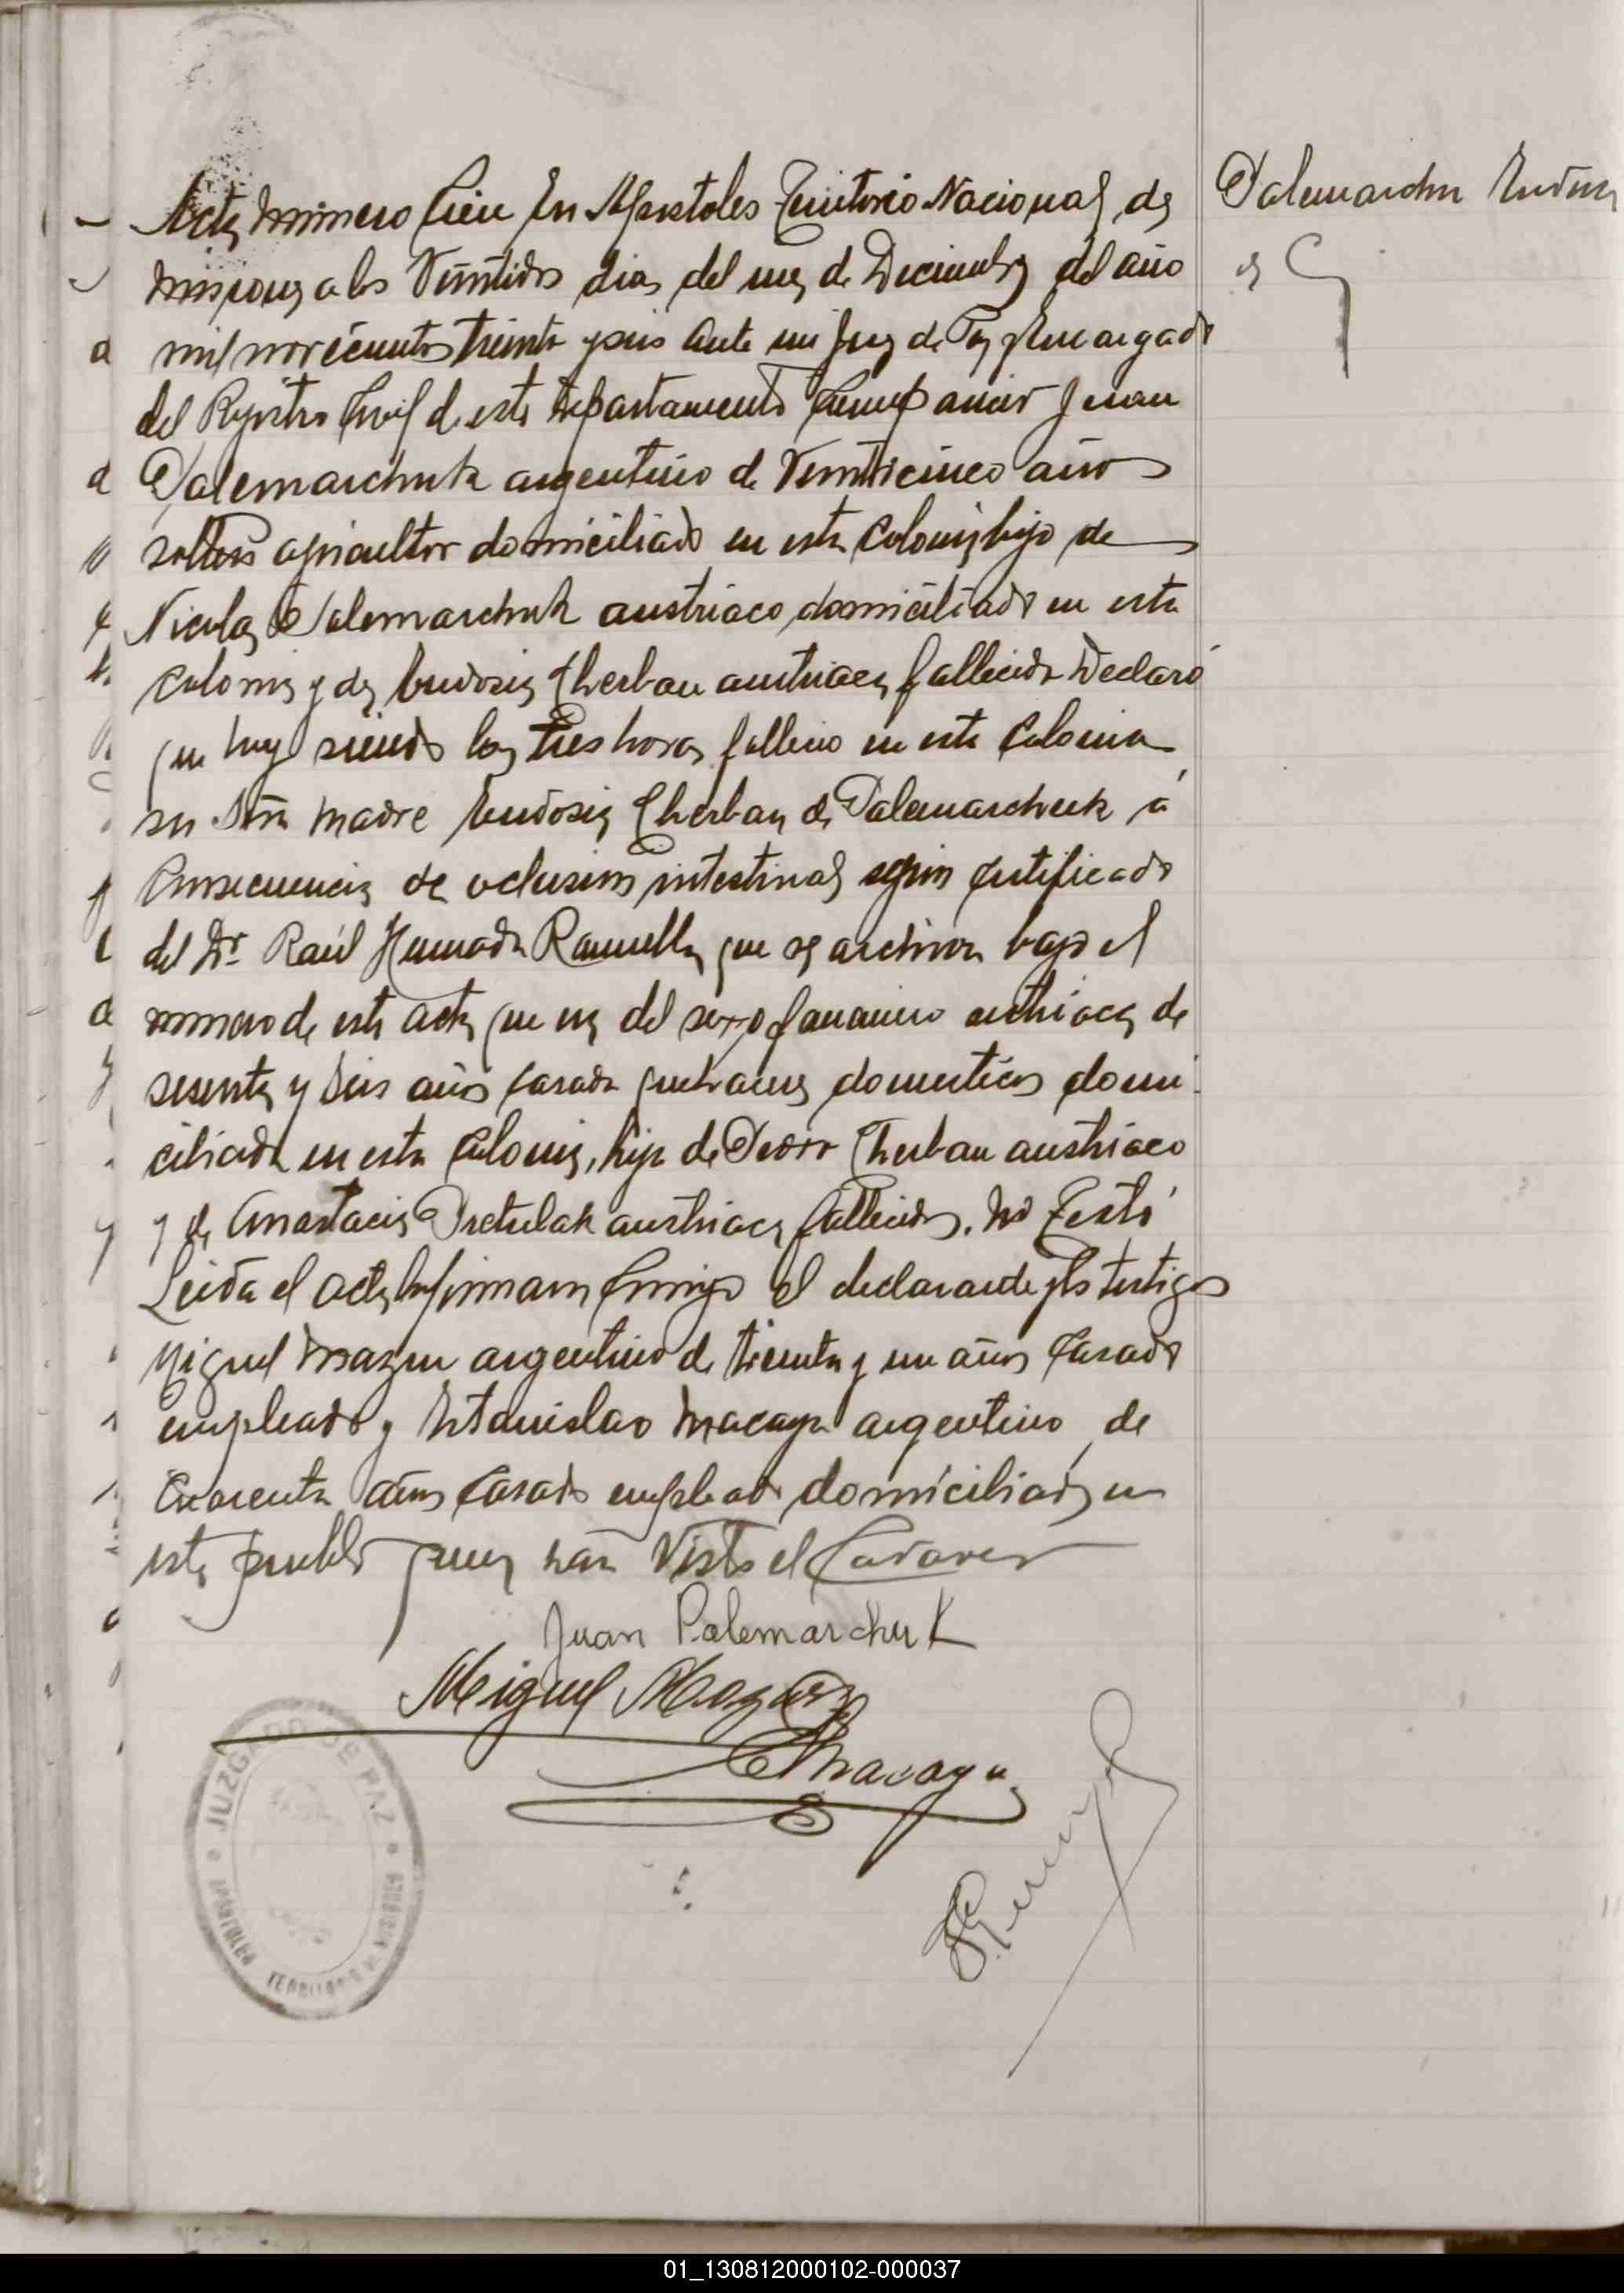 Acta número Cien En Apostoles Territorio Nacional de
misiones a los Veintidos dias del mes de Diciembre del año
mil novecientos treinta y seis Ante mi Juez de Paz y Encargado
del Registro Civil de este Departamento Compareció Juan
Palemarchuk argentino de Veinticinco años
soltero agricultor domiciliado en esta Colonia hijo de
Nicolas Palemarchuk austriaco domiciliado en esta
colonia y de Eudosia Cherban austriaca fallecida Declaró
que hoy siendo las tres horas fallecio en esta Colonia
su Sra madre Eudosia Cherban de Palemarchuk á
Consecuencia de oclusion intestinal segun certificado
del Dr. Raúl Ramella que se archiva bajo el
numero de esta acta que era del sexo femenino austriaca de
sesenta y seis años casada quehaceres domesticos domi
ciliada en esta Colonia, hija de Cherban austriaco
y de Anastacia austriaca fallecidos. No Testó
Leida el acta la firmaron Conmigo el declarante y los testigos
Miguel Mazur argentino de treinta y un años Casado
empleado y Estanislao Macaya argentino de
Cuarenta años Casado empleado domiciliados en
este pueblo quienes han Visto el Cadaver
Juan Palemarchuk
Miguel Mazur
EMacaya
JUZGADO DE PAZ
APÓSTOLES TERRITORIO DE MISIONES
Palemarchu Eudosia
01_130812000102-000037